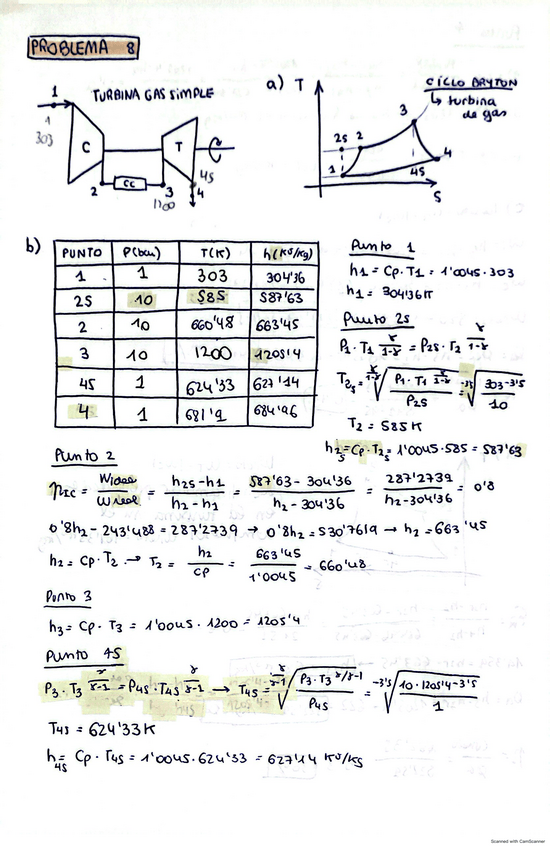 PROBLEMA 8
TURBINA GAS SIMPLE
1
1
303
C
T
CC
2
3
1200
4S
4
a) T
CICLO BRYTON
↳ turbina
de gas
3
2S 2
1
4
4S
S
b)
PUNTO P(bar) T(K) h(KJ/Kg)
1 1 303 304'36
2S 10 585 587'63
2 10 660'48 663'45
3 10 1200 1205'4
4S 1 624'33 627'14
4 1 681'9 684'96
Punto 1
h1 = Cp·T1 = 1'0045·303
h1 = 304'36K
Punto 2s
P1·T1^(γ/(1-γ)) = P2s·T2^(γ/(1-γ))
T2s = ^(γ/(1-γ))√(P1·T1^(γ/(1-γ)) / P2S) = ^(-3'5)√(303^(-3'5) / 10)
T2 = 585K
h2s = Cp·T2s = 1'0045·585 = 587'63
Punto 2
ηic = Wideal / Wreal = (h2s-h1) / (h2-h1) = (587'63 - 304'36) / (h2 - 304'36) = 287'2739 / (h2-304'36) = 0'8
0'8h2 - 243'488 = 287'2739 → 0'8h2 = 530'7619 → h2 = 663'45
h2 = Cp·T2 → T2 = h2 / cp = 663'45 / 1'0045 = 660'48
Punto 3
h3 = Cp·T3 = 1'0045·1200 = 1205'4
Punto 4S
P3·T3^(γ/(γ-1)) = P4s·T4s^(γ/(γ-1)) → T4s = ^(γ/(γ-1))√(P3·T3^(γ/γ-1) / P4s) = ^(-3'5)√(10·1205'4^(-3'5) / 1)
T4s = 624'33K
h4s = Cp·T4s = 1'0045·624'33 = 627'14 KJ/Kg
Scanned with CamScanner